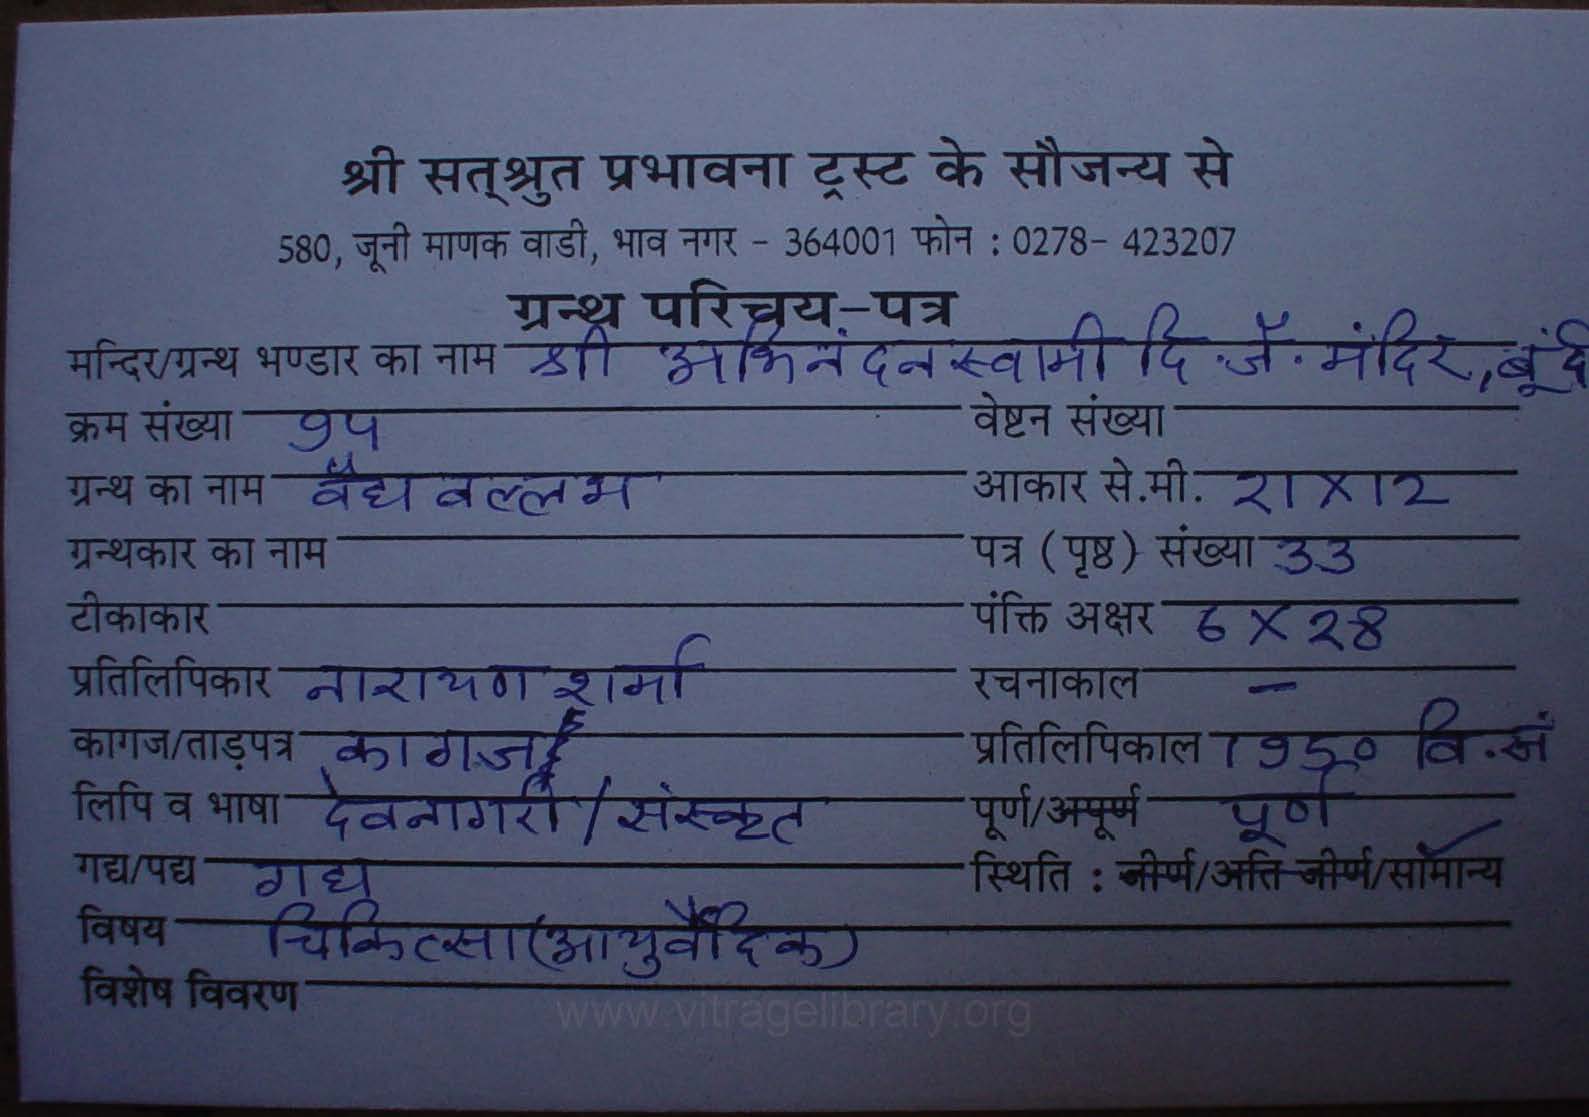 श्री सत्श्रुत प्रभावना ट्रस्ट के सौजन्य से
580, जूनी माणक वाडी, भाव नगर - 364001 फोन : 0278- 423207
ग्रन्थ परिचय-पत्र
मन्दिर/ग्रन्थ भण्डार का नाम श्री अभिनंदनस्वामी दि.जैं. मंदिर, बूंदी
क्रम संख्या ९५ वेष्टन संख्या
ग्रन्थ का नाम वैद्य वल्लभ आकार से.मी. 21X12
ग्रन्थकार का नाम पत्र (पृष्ठ) संख्या 33
टीकाकार पंक्ति अक्षर 6X28
प्रतिलिपिकार नारायण शर्मा रचनाकाल -
कागज/ताड़पत्र कागज प्रतिलिपिकाल 1950 वि.सं
लिपि व भाषा देवनागरी/संस्कृत पूर्ण/अपूर्ण पूर्ण
गद्य/पद्य गद्य स्थिति : जीर्ण/अति जीर्ण/सामान्य
विषय चिकित्सा(आयुर्वैदिक)
विशेष विवरण
www.vitragelibrary.org